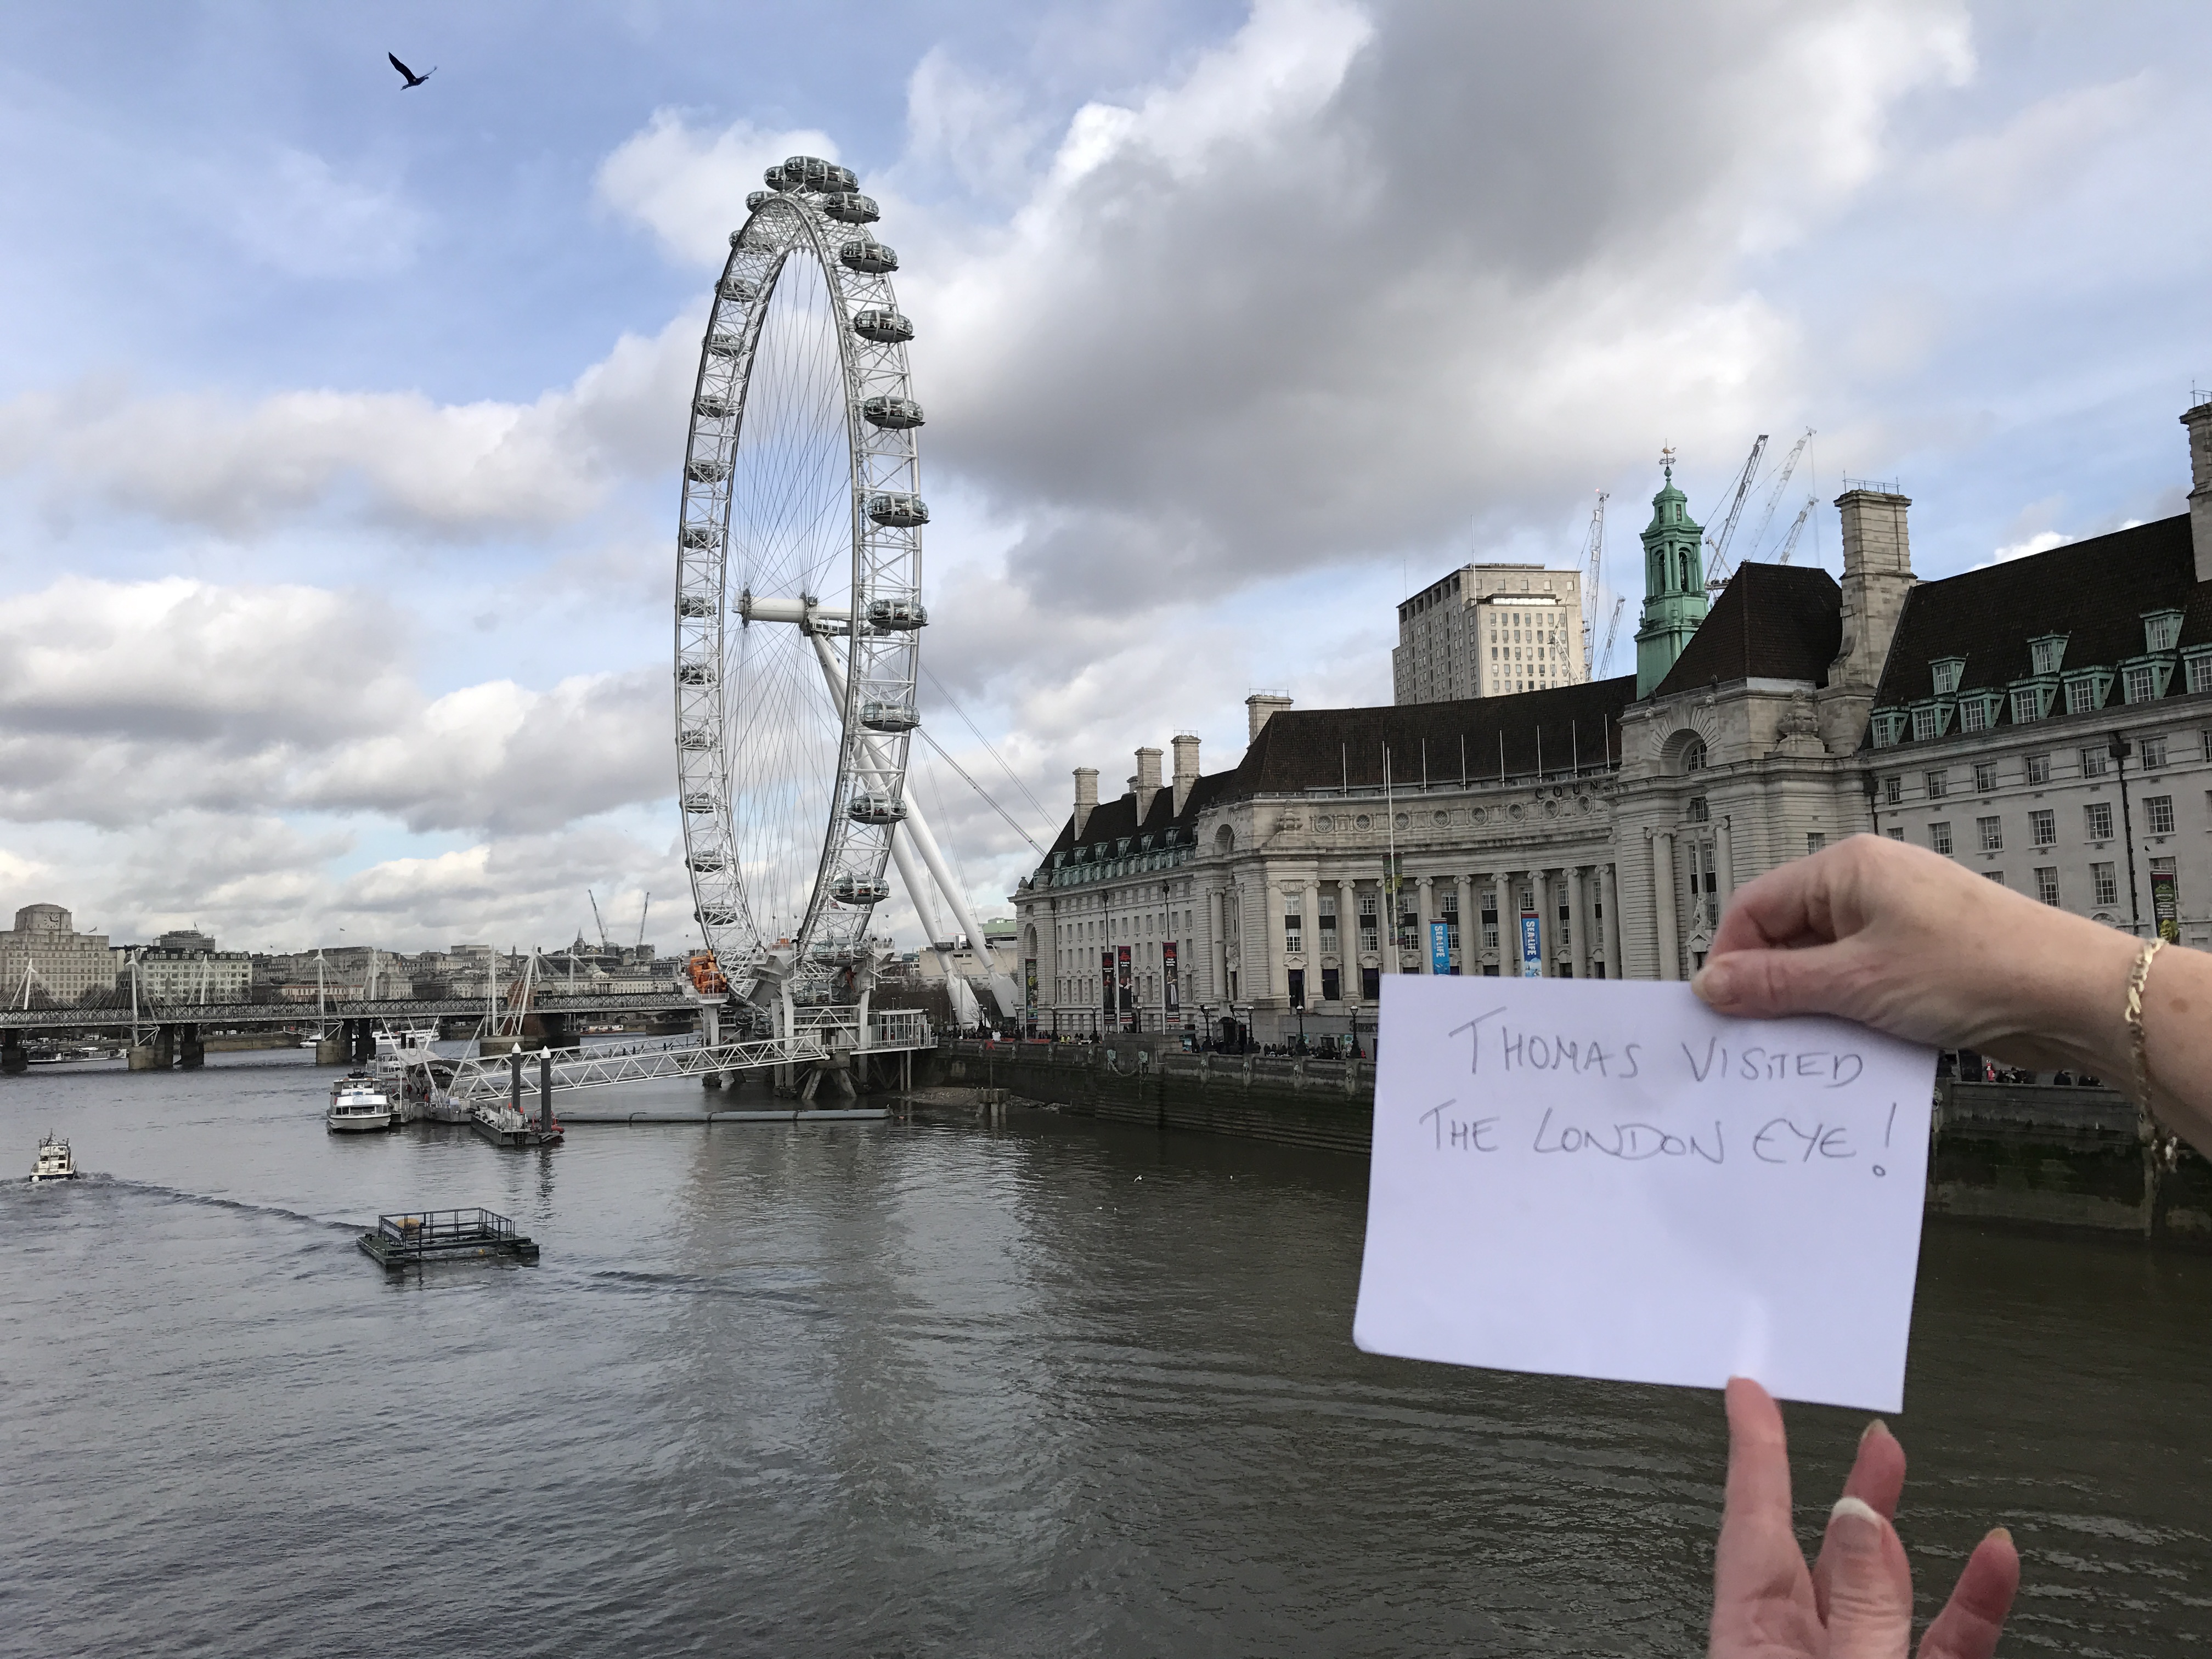 COUN
SEA LIFE
SEA LIFE
THOMAS VISITED
THE LONDON EYE!